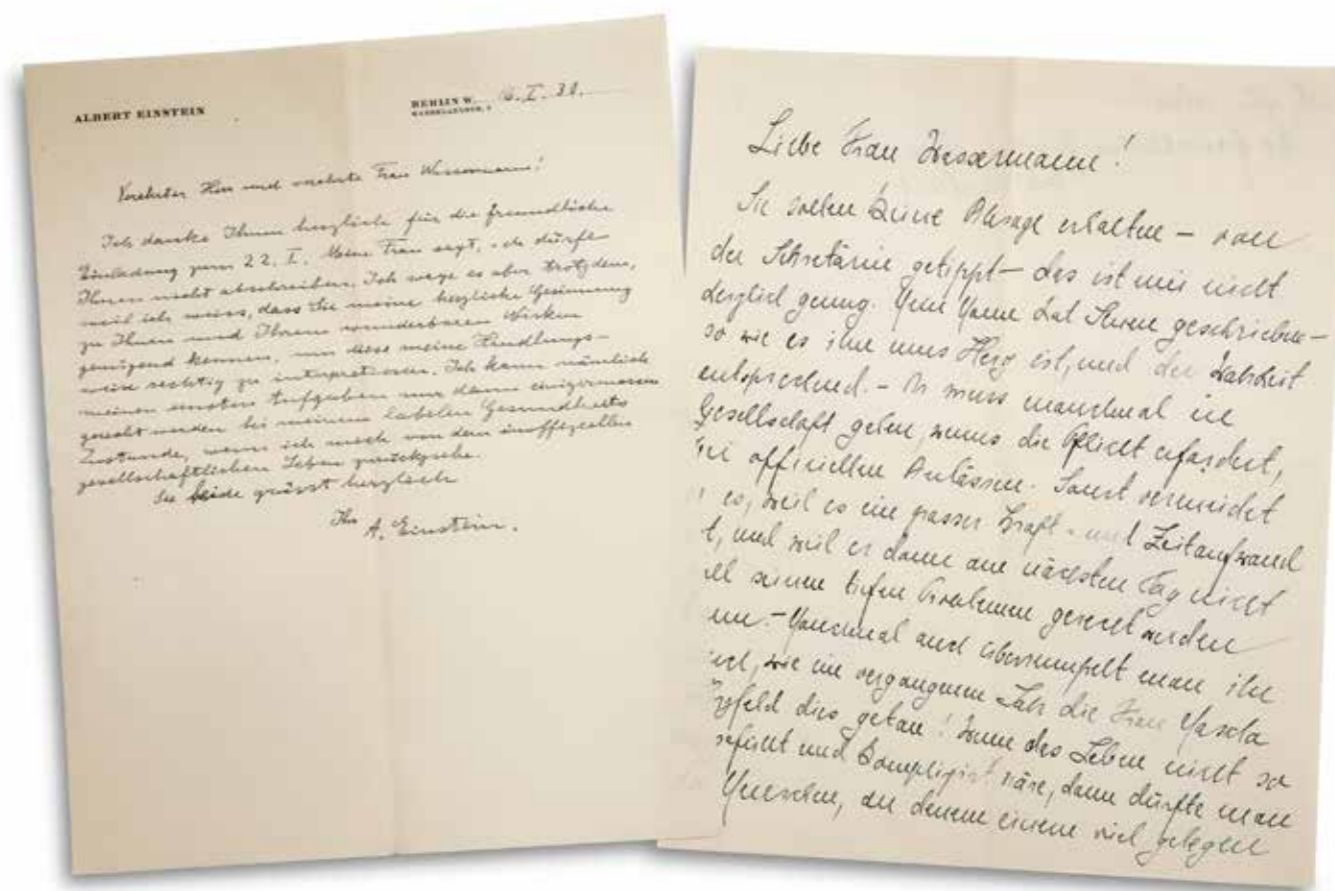 ALBERT EINSTEIN
BERLIN W. 16. I. 31.
HABERLANDSTR. 5
Verehrter Herr und verehrte Frau Wassermann!
Ich danke Ihnen herzlich für die freundliche
Einladung zum 22. I. Meine Frau sagt, ich dürfe
Ihnen nicht abschreiben. Ich wage es aber trotzdem,
weil ich weiss, dass Sie meine herzliche Gesinnung
zu Ihnen und Ihrem wunderbaren Wirken
genügend kennen, um diese meine Handlungs-
weise richtig zu interpretieren. Ich kann nämlich
meinen ernsten Aufgaben nur dann einigermassen
gerecht werden bei meinem labilen Gesundheits
Zustande, wenn ich mich von dem inoffiziellen
gesellschaftlichen Leben zurückziehe.
Sie beide grüsst herzlich
Ihr
A. Einstein.
Liebe Frau Wassermann!
Sie sollen keine Absage erhalten – von
der Sekretärin getippt – das ist mir nicht
herzlich genug. Mein Mann hat Ihnen geschrieben –
so wie es ihm ums Herz ist, und der Wahrheit
entsprechend. – Er muss manchmal in
Gesellschaft gehen, wenns die Pflicht erfordert,
bei offiziellen Anlässen. Sonst vermeidet
es, weil es ein grosser Kraft- und Zeitaufwand
t, und weil er dann am nächsten Tag nicht
ll seinen tiefen Problemen gerecht werden
nn. – Manchmal auch überrumpelt man ihn
wie im vergangenen Jahr die Frau
dies getan! Wenn das Leben nicht so
und kompliziert wäre, dann dürfte man
Menschen, an denen einem viel gelegen